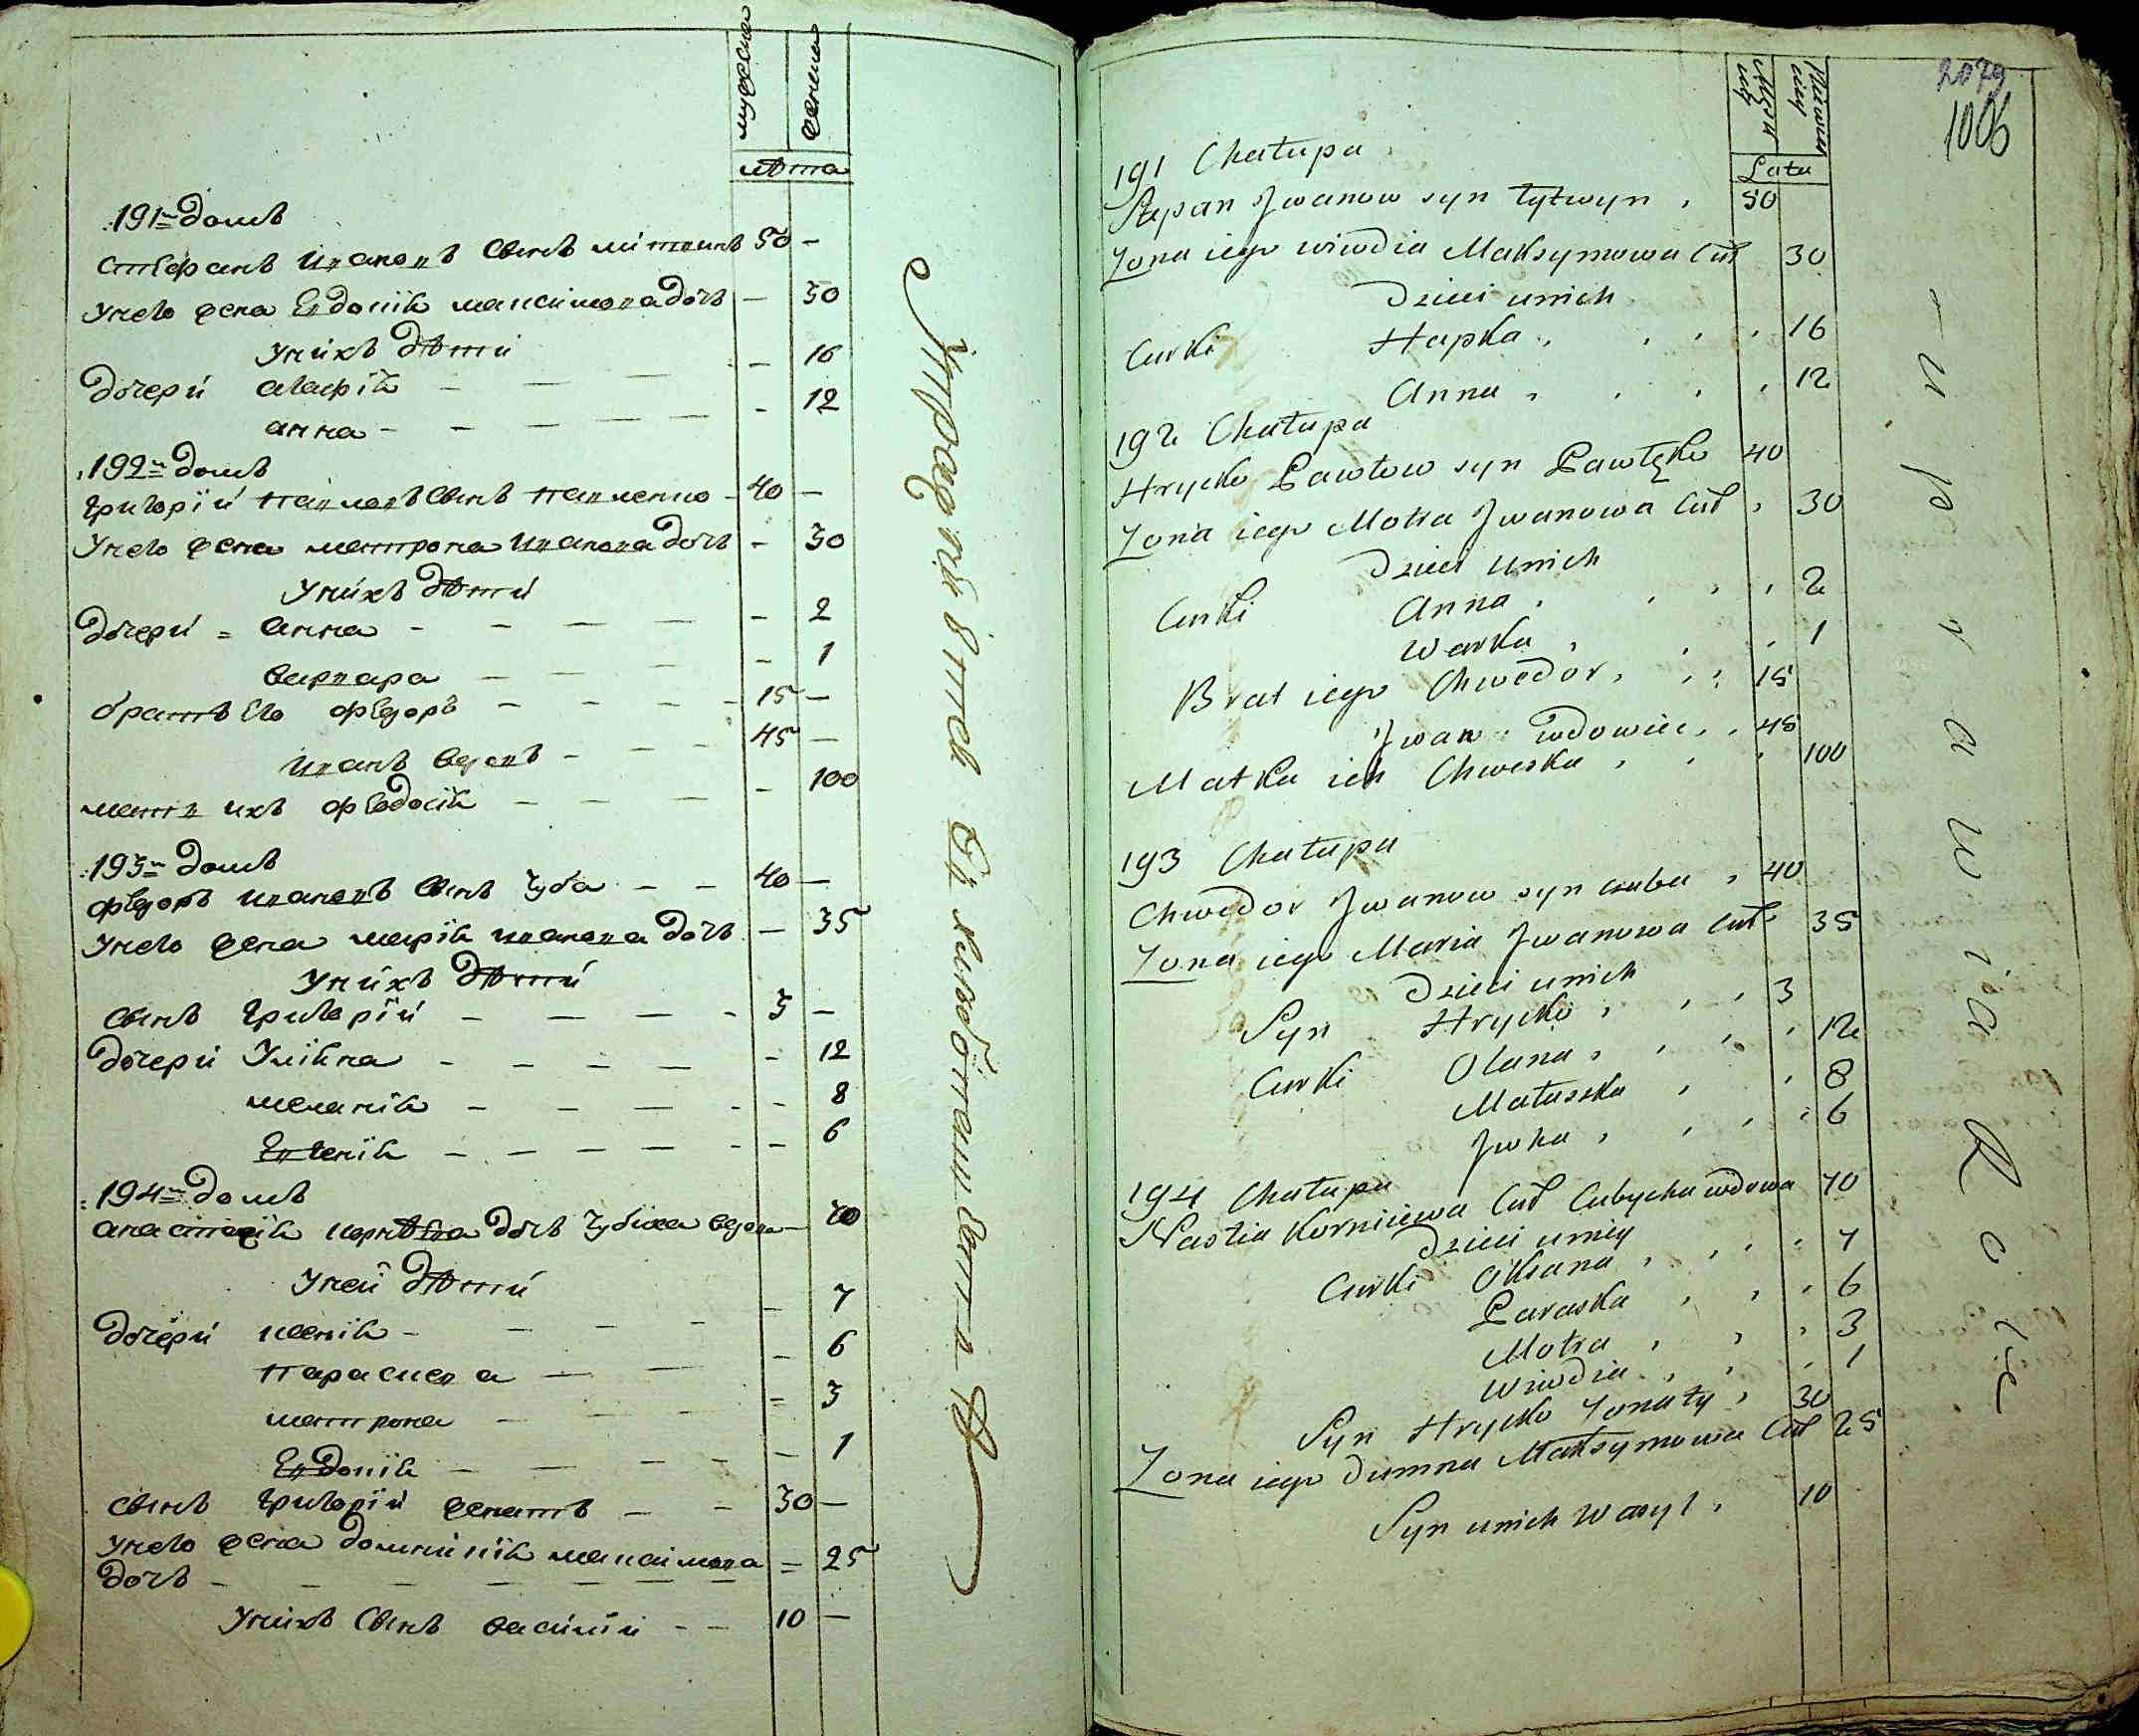 мужеска
женска
лѣта
191й домъ
стефанъ ивановъ сынъ литвинъ 50 –
унего жена Евдокія максимова дочь – 30
унихъ дѣти
дочери агафія – 16
анна – 12
192й домъ
григорій павловъ сынъ павленко – 40 –
унего жена матрона иванова дочь – 30
унихъ дѣти
дочери = анна – 2
варвара – 1
братъ его феодоръ – 15 –
иванъ вдовъ – 45 –
мать ихъ феодосія – 100
193й домъ
феодоръ ивановъ сынъ чуба – 40 –
унего жена марія иванова дочь – 35
унихъ дѣти
сынъ григорій – 3 –
дочери Уліяна – 12
меланія – 8
Евгенія – 6
194й домъ
анастасія корнѣева дочь чубиха вдова – 40
уней дѣти
дочери ксенія – 7
параскева – 6
матрона – 3
Евдокія – 1
сынъ григорій женатъ – 30 –
унего жена домникія максимова = 25
дочь –
унихъ сынъ василій – 10 –
2079
1006
Męzka
płeć
Latu
191 Chałupa
Stepan Jwanow syn Łytwyn 50
Zona iego wiwdia Maksymowa Cur 30
Dzieci unich
Curki Hapka 16
Anna 12
192 Chałupa
Hrycko Pawłow syn Pawłęko 40
Zona iego Motra Jwanowa Cur 30
Dzieci unich
Curki Anna 2
Warka 1
Brat iego Chwedor 15
Jwan wdowiec 45
Matka ich Chweska 100
193 Chałupa
Chwedor Jwanow syn czuba 40
Zona iego Maria Jwanowa cur 35
Dzieci unich
Syn Hrycko 3
Curki Olana 12
Małaszka 8
Jwha 6
194 Chałupa
Nastia Korniiewa Cur Cubycha wdowa 40
Dzieci uniey
Curki Oksana 7
Paraska 6
Motra 3
Wiwdia 1
Syn Hrycko Zonaty 30
Zona iego Dumna Maksymowa Cur 25
Syn unich Wasyl 10